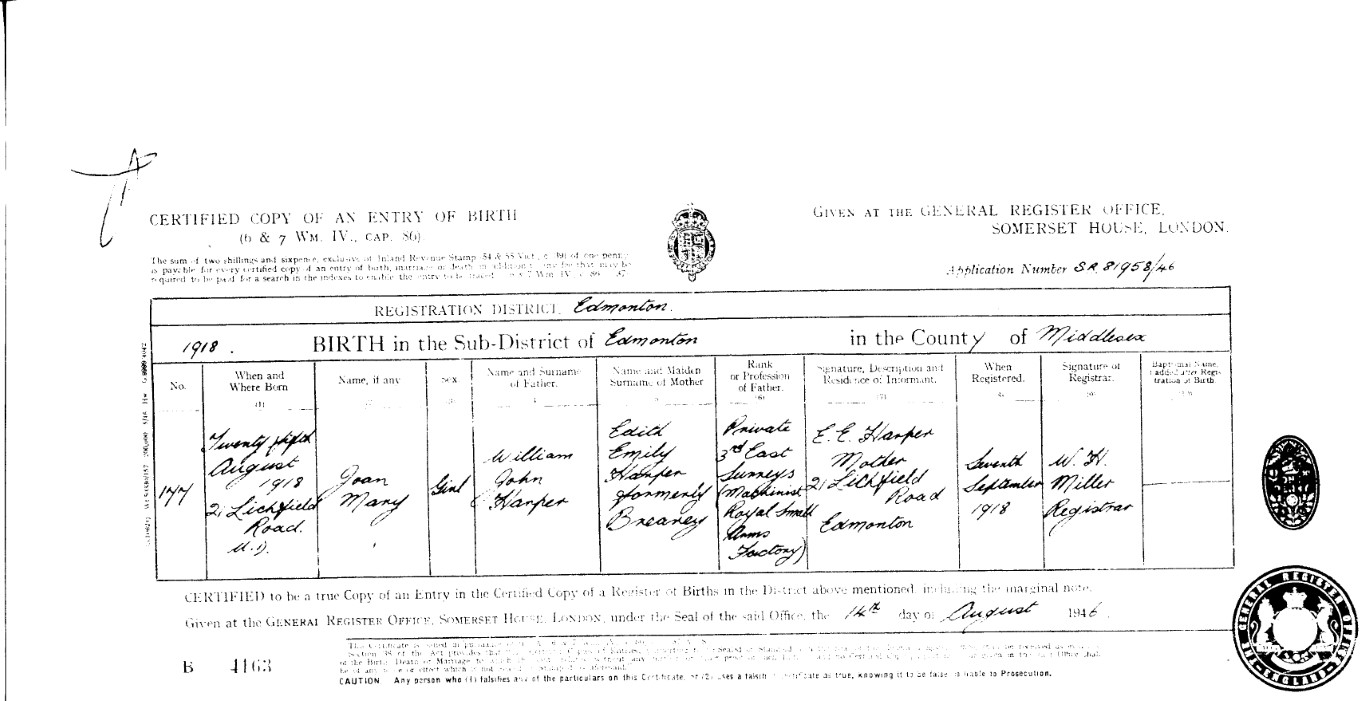 CERTIFIED COPY OF AN ENTRY OF BIRTH
(6 & 7 WM. IV., CAP. 86).
GIVEN AT THE GENERAL REGISTER OFFICE,
SOMERSET HOUSE, LONDON.
Application Number SR 81958/46
The sum of two shillings and sixpence, exclusive of Inland Revenue Stamp of one penny
is payable for every certified copy of an entry of birth, marriage or death
required to be paid for a search in the indexes to enable the entry to be traced
REGISTRATION DISTRICT. Edmonton.
1918. BIRTH in the Sub-District of Edmonton in the County of Middlesex
No.
When and
Where Born
(1)
Name, if any
Sex
Name and Surname
of Father.
Name and Maiden
Surname of Mother
Rank
or Profession
of Father.
(6)
Signature, Description and
Residence of Informant.
(7)
When
Registered.
Signature of
Registrar.
Baptismal Name,
if added after Regis-
tration of Birth.
177
Twenty fifth
August
1918
21 Lichfield
Road.
Joan
Mary
Girl
William
John
Harper
Edith
Emily
Harper
formerly
Breaney
Private
3rd East
Surreys
(Machinist
Royal Small
Arms
Factory)
E. E. Harper
Mother
21 Lichfield
Road
Edmonton
Seventh
September
1918
W. H.
Miller
Registrar
CERTIFIED to be a true Copy of an Entry in the Certified Copy of a Register of Births in the District above mentioned, including the marginal note.
Given at the GENERAL REGISTER OFFICE, SOMERSET HOUSE, LONDON, under the Seal of the said Office, the 14th day of August 1946.
B 4163
CAUTION Any person who (1) falsifies any of the particulars on this Certificate, or (2) uses a false certificate as true, knowing it to be false is liable to Prosecution.
GENERAL REGISTER OFFICE
ENGLAND